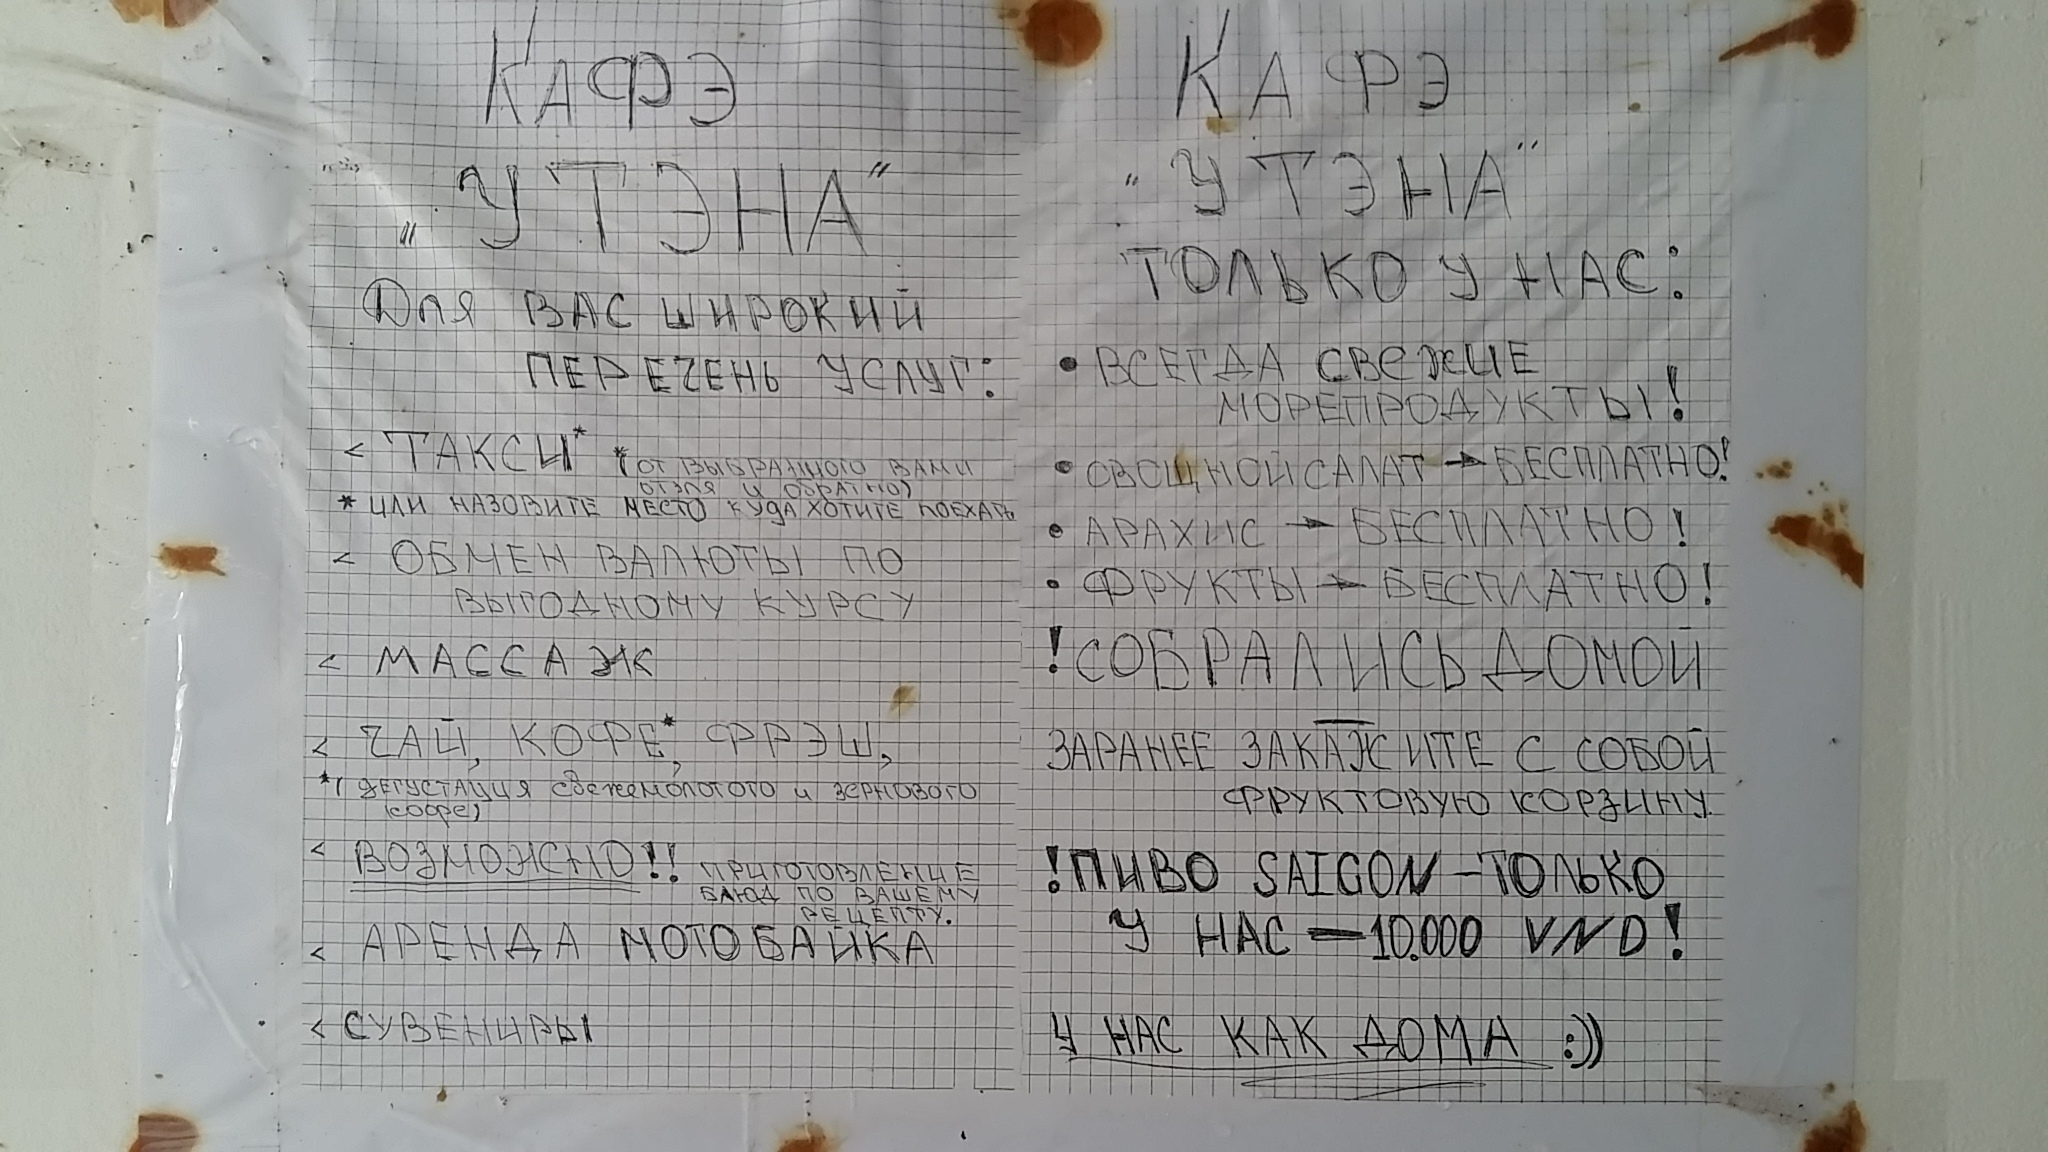 КАФЭ
"У ТЭНА"
Для ВАС ШИРОКИЙ
ПЕРЕЧЕНЬ УСЛУГ:
< ТАКСИ* *(ОТ ВЫБРАННОГО ВАМИ
ОТЭЛЯ И ОБРАТНО)
* ИЛИ НАЗОВИТЕ МЕСТО КУДА ХОТИТЕ ПОЕХАТЬ
< ОБМЕН ВАЛЮТЫ ПО
ВЫГОДНОМУ КУРСУ
< МАССАЖ
< ЧАЙ, КОФЕ*, ФРЭШ,
*( ДЕГУСТАЦИЯ СВЕЖЕМОЛОТОГО И ЗЕРНОВОГО
КОФЕ)
< ВОЗМОЖНО!! ПРИГОТОВЛЕНИЕ
БЛЮД ПО ВАШЕМУ
РЕЦЕПТУ.
< АРЕНДА МОТОБАЙКА
< СУВЕНИРЫ
КАФЭ
"У ТЭНА"
ТОЛЬКО У НАС:
• ВСЕГДА СВЕЖИЕ
МОРЕПРОДУКТЫ!
• ОВОЩНОЙ САЛАТ → БЕСПЛАТНО!
• АРАХИС → БЕСПЛАТНО!
• ФРУКТЫ → БЕСПЛАТНО!
! СОБРАЛИСЬ ДОМОЙ
ЗАРАНЕЕ ЗАКАЖИТЕ С СОБОЙ
ФРУКТОВУЮ КОРЗИНУ.
! ПИВО SAIGON – ТОЛЬКО
У НАС – 10.000 VND!
У НАС КАК ДОМА :))